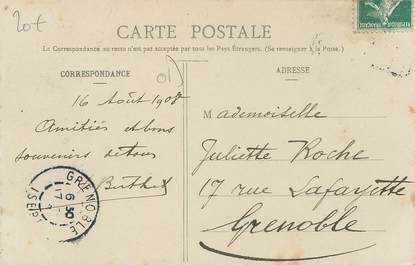 20€
CARTE POSTALE
La Correspondance au recto n'est pas acceptée par tous les Pays Étrangers. (Se renseigner à la Poste.)
CORRESPONDANCE
01
16 Août 1908
Amitiés et bons
souvenirs de tous
Berthet
ADRESSE
Mademoiselle
Juliette Roche
17 rue Lafayette
Grenoble
GRENOBLE
6 30
17
ISÈRE